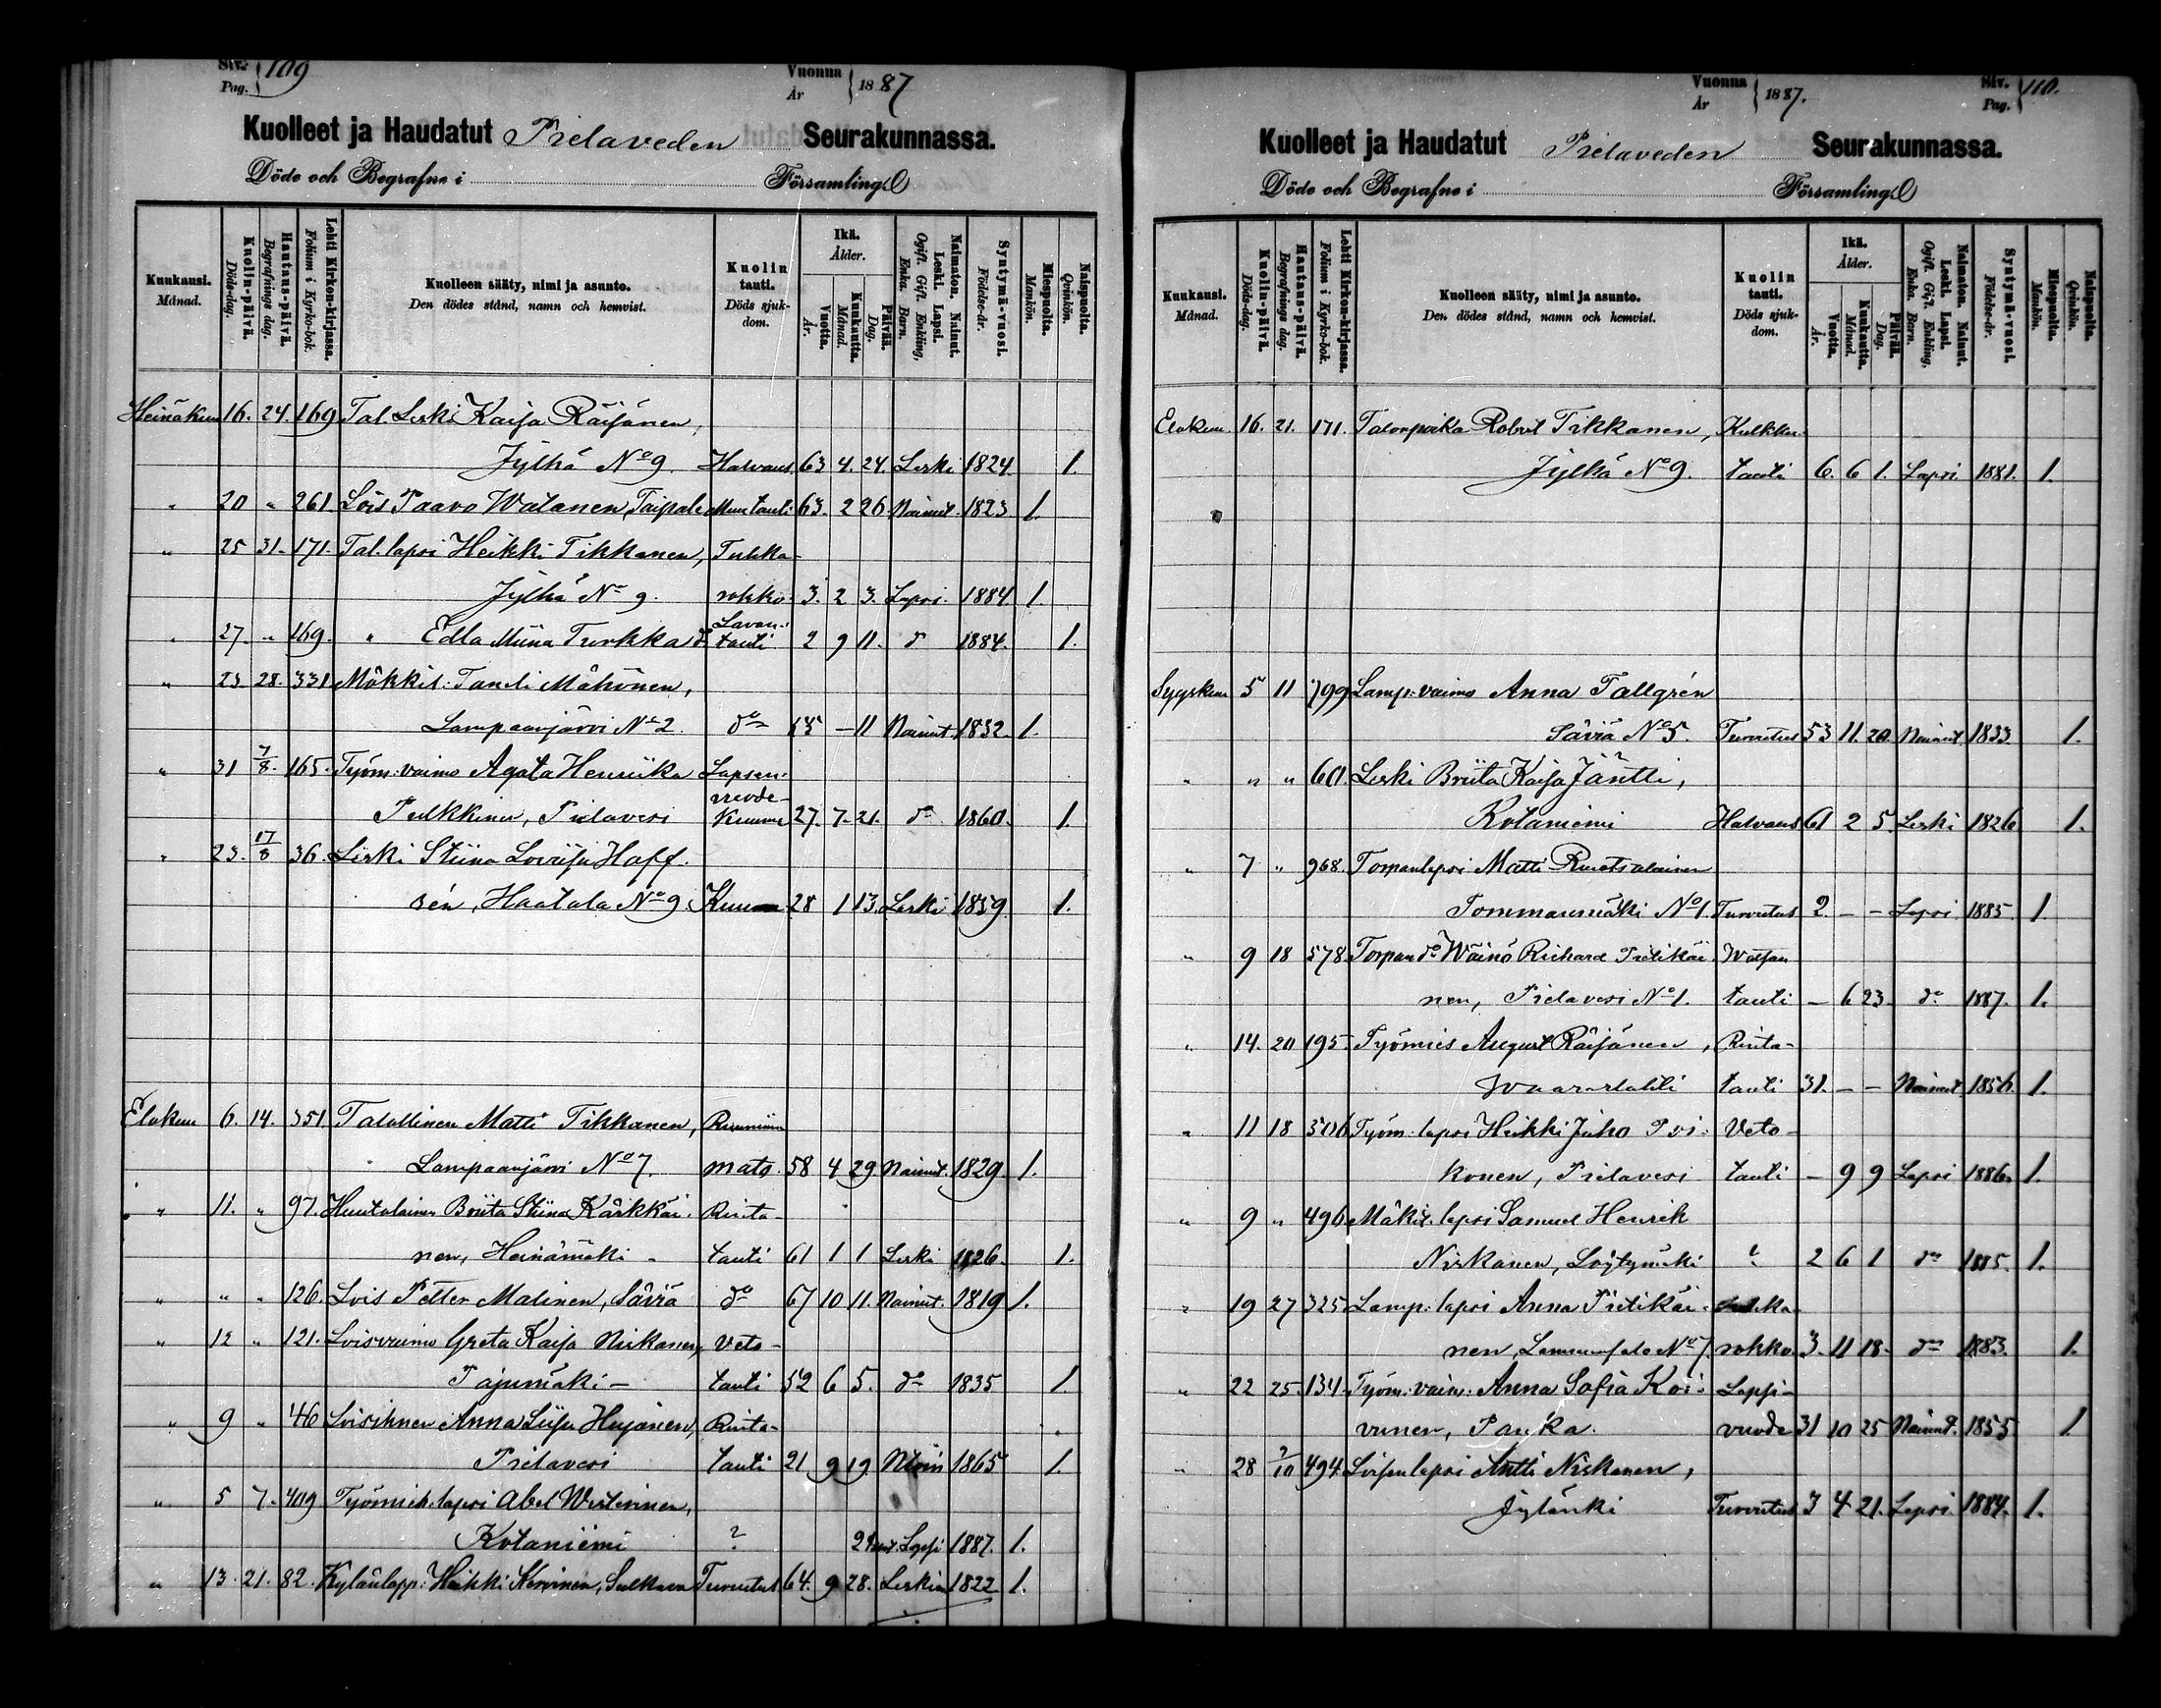 Siv. Pag. 109
Vuonna År 1887
Kuolleet ja Haudatut Pielaveden Seurakunnassa.
Döde och Begrafne i Församling
Kuukausi. Månad.
Kuolin-päivä. Döds-dag.
Hautaus-päivä. Begrafnings dag.
Lehti Kirkon-kirjassa. Folium i Kyrko-bok.
Kuolleen sääty, nimi ja asunto. Den dödes stånd, namn och hemvist.
Kuolin tauti. Döds sjukdom.
Ikä. Ålder.
Vuotta. År.
Kuukautta. Månad.
Päivää. Dag.
Naimaton. Nainut. Leski. Lapsi. Ogift. Gift. Enkling, Enka. Barn.
Syntymä-vuosi. Födelse-år.
Miespuolta. Mankön.
Naispuolta. Qvinkön.
Heinäkuu 16. 24. 169 Tal. Leski Kaisa Räisänen,
Jylhä No 9. Halvaus 63 4. 24. Leski 1824. 1.
" 20 " 261 Lois Paavo Watanen, Taipale Muu tauti 63. 2 26 Nainut. 1823. 1.
" 25 31. 171. Tal. lapsi Heikki Tikkanen, Tuhka-
Jylhä No 9. rokko. 3. 2 3. Lapsi. 1884. 1.
" 27. " 169. " Edla Miina Turkka do Lavan-
tauti 2 9 11. d 1884. 1.
" 23. 28. 331 Mökkil: Taneli Mähönen,
Lampaanjärvi No 2. do 55 - 11 Nainut. 1832. 1.
" 31 7/8. 165. Työm: vaimo Agata Henriika Lapsen-
vuode-
Pulkkinen, Pielavesi Kuume 27. 7. 21. do 1860. 1.
" 23. 17/8 36. Leski Stiina Lovisa Hoff.
sén, Haatala No 9. Kuume 28 1 13. Leski 1859. 1.
Elokuu 6. 14. 351. Talollinen Matti Tikkanen, Ruumiin
Lampaanjärvi No 7. mato. 58 4 29 Nainut. 1829. 1.
" 11. " 97. Huutolainen Briita Stiina Kärkkäi- Rinta-
nen, Heinämäki - tauti 61 1 1 Leski 1826. 1.
" " " 126. Lois Petter Malinen, Säviä do 67 10 11. Nainut. 1819 1.
" 12 " 121. Loisvaimo Greta Kaisa Niskanen, Veto-
Pajumäki - tauti 52 6 5. do 1835 1.
" 9 " 46 Loisihnen Anna Liisa Hujanen, Rinta-
Pielavesi tauti 21 9 19. 1865 1.
" 5 7. 409 Työmieh. lapsi Abel Westerinen,
Kotaniemi ? Lapsi 1887. 1.
" 13. 21. 82. Kylänlapp: Heikki Korvinen, Sulkava Turvotus 64. 9 28. Leskim 1822 1.
Vuonna År 1887.
Siv. Pag. 110.
Kuolleet ja Haudatut Pielaveden Seurakunnassa.
Döde och Begrafne i Församling
Kuukausi. Månad.
Kuolin-päivä. Döds-dag.
Hautaus-päivä. Begrafnings dag.
Lehti Kirkon-kirjassa. Folium i Kyrko-bok.
Kuolleen sääty, nimi ja asunto. Den dödes stånd, namn och hemvist.
Kuolin tauti. Döds sjukdom.
Ikä. Ålder.
Vuotta. År.
Kuukautta. Månad.
Päivää. Dag.
Naimaton. Nainut. Leski. Lapsi. Ogift. Gift. Enkling, Enka. Barn.
Syntymä-vuosi. Födelse-år.
Miespuolta. Mankön.
Naispuolta. Qvinkön.
Elokuu 16. 21. 171. Talonpoika Robert Tikkanen, Kulkku-
Jylhä No 9. tauti 6. 6 1. Lapsi. 1881. 1.
Syyskuu 5 11 799 Lamp: vaimo Anna Tallgrén
Säviä No 5. Turvotus 53 11. 20. Nainut 1833. 1.
" " " 601. Leski Briita Kaisa Jäntti,
Kotaniemi Halvaus 61 2 5 Leski 1826 1.
" 7 " 968. Torpanlapsi Matti Ruotsalainen
Tommaumäki No 1. Turvotus 2. - - Lapsi 1885. 1.
" 9 18 578. Torpan do Wäinö Richard Pietikäi Watsan
nen, Pielavesi No 1. tauti - 6 23. do 1887. 1.
" 14. 20 195. Työmies August Räisänen, Rinta-
tauti 31. - - Nainut. 1856. 1.
" 11 18 506 Työm. lapsi Heikki Juho Poi- Veto-
konen, Pielavesi tauti - 9 9 Lapsi 1886. 1.
" 9 " 496 Mäkit. lapsi Samuel Henrik
Niskanen, Löytymäki ? 2 6 1 do 1885. 1.
" 19 27 325 Lamp: lapsi Anna Pietikäi- Tuhka-
nen, No 7. rokko. 3. 11 18. do 1883. 1.
" 22 25. 134. Työm: vaim: Anna Sofia Koi- Lapsi-
vunen, Panka. vuode 31 10 25 Nainut. 1855 1.
" 28 2/10 494 Loisen lapsi Antti Niskanen,
Jylänki Turvotus 3 4 21. Lapsi. 1884. 1.